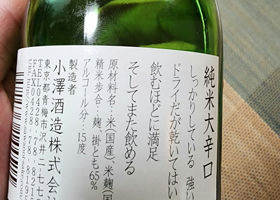 純米大辛口
しっかりしている 強い
ドライだが乾いてはい
飲むほどに満足
そしてまた飲める
原材料名:米(国産)、米麹(国
精米歩合:麹、掛とも65%
アルコール分:15度
製造者
小澤酒造株式会
東京都青梅市沢井二-七七
TEL0428-78-8